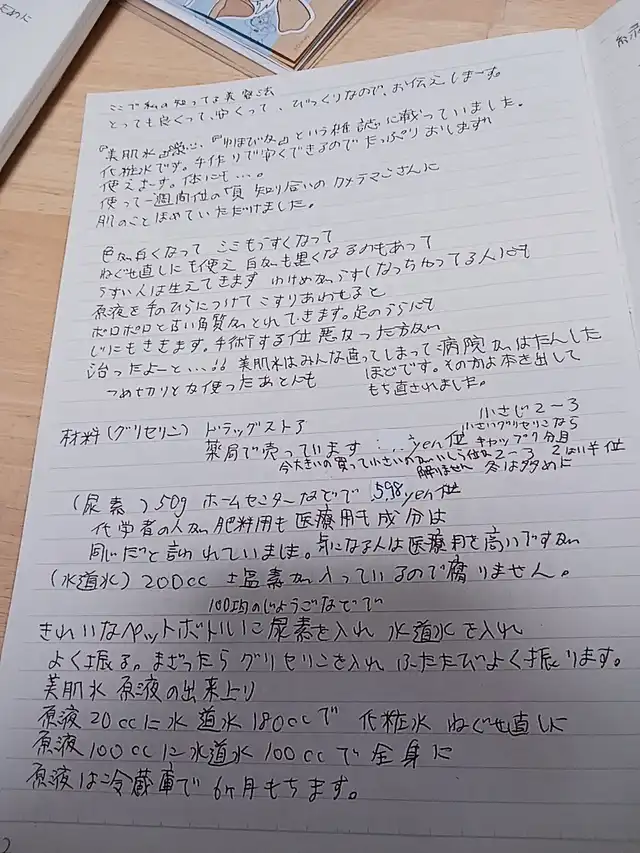 ここで私の知ってる美容法
とっても良くって、安くって、びっくりなので、お伝えします。
『美肌水』『ゆほびか』という雑誌に載っていました。
化粧水です。手作りで安くできるのでたっぷりおしまず
使えます。体にも…。
使って一週間位の頃 知り合いのカメラマンさんに
肌のことほめていただけました。
色が白くなって シミもうすくなって
ねぐせ直しにも使え 白がも黒くなるのもあって
うすい人は生えてきます わけめがうすくなっちゃってる人にも
原液を手のひらにつけてこすりあわせると
ボロボロと古い角質がとれてきます。足のうらにも
じにもききます。手術する位悪かった方が
治ったよーと…!! 美肌水はみんな直ってしまって病院がはたんした
つめ切りとか使ったあとんも ほどです。その方が本を出して
もち直されました。
材料(グリセリン) ドラッグストア
薬局で売っています …yen位
小さじ2〜3
小さいグリセリンなら
キャップ7分目
今大きいの買って小さいのがいくら位か 2〜3 2はい半位
解りません 冬は多めに
(尿素)50g ホームセンターなどで 598yen位
化学者の人が肥料用も医療用も成分は
同じだと言われていました。気になる人は医療用を高いですが
(水道水)200cc 塩素が入っているので腐りません。
100均のじょうごなどで
きれいなペットボトルに尿素を入れ 水道水を入れ
よく振る。まざったらグリセリンを入れ ふたたびよく振ります。
美肌水 原液の出来上り
原液20ccに水道水180ccで 化粧水 ねぐせ直しに
原液100ccに水道水100ccで全身に
原液は冷蔵庫で6ヶ月もちます。